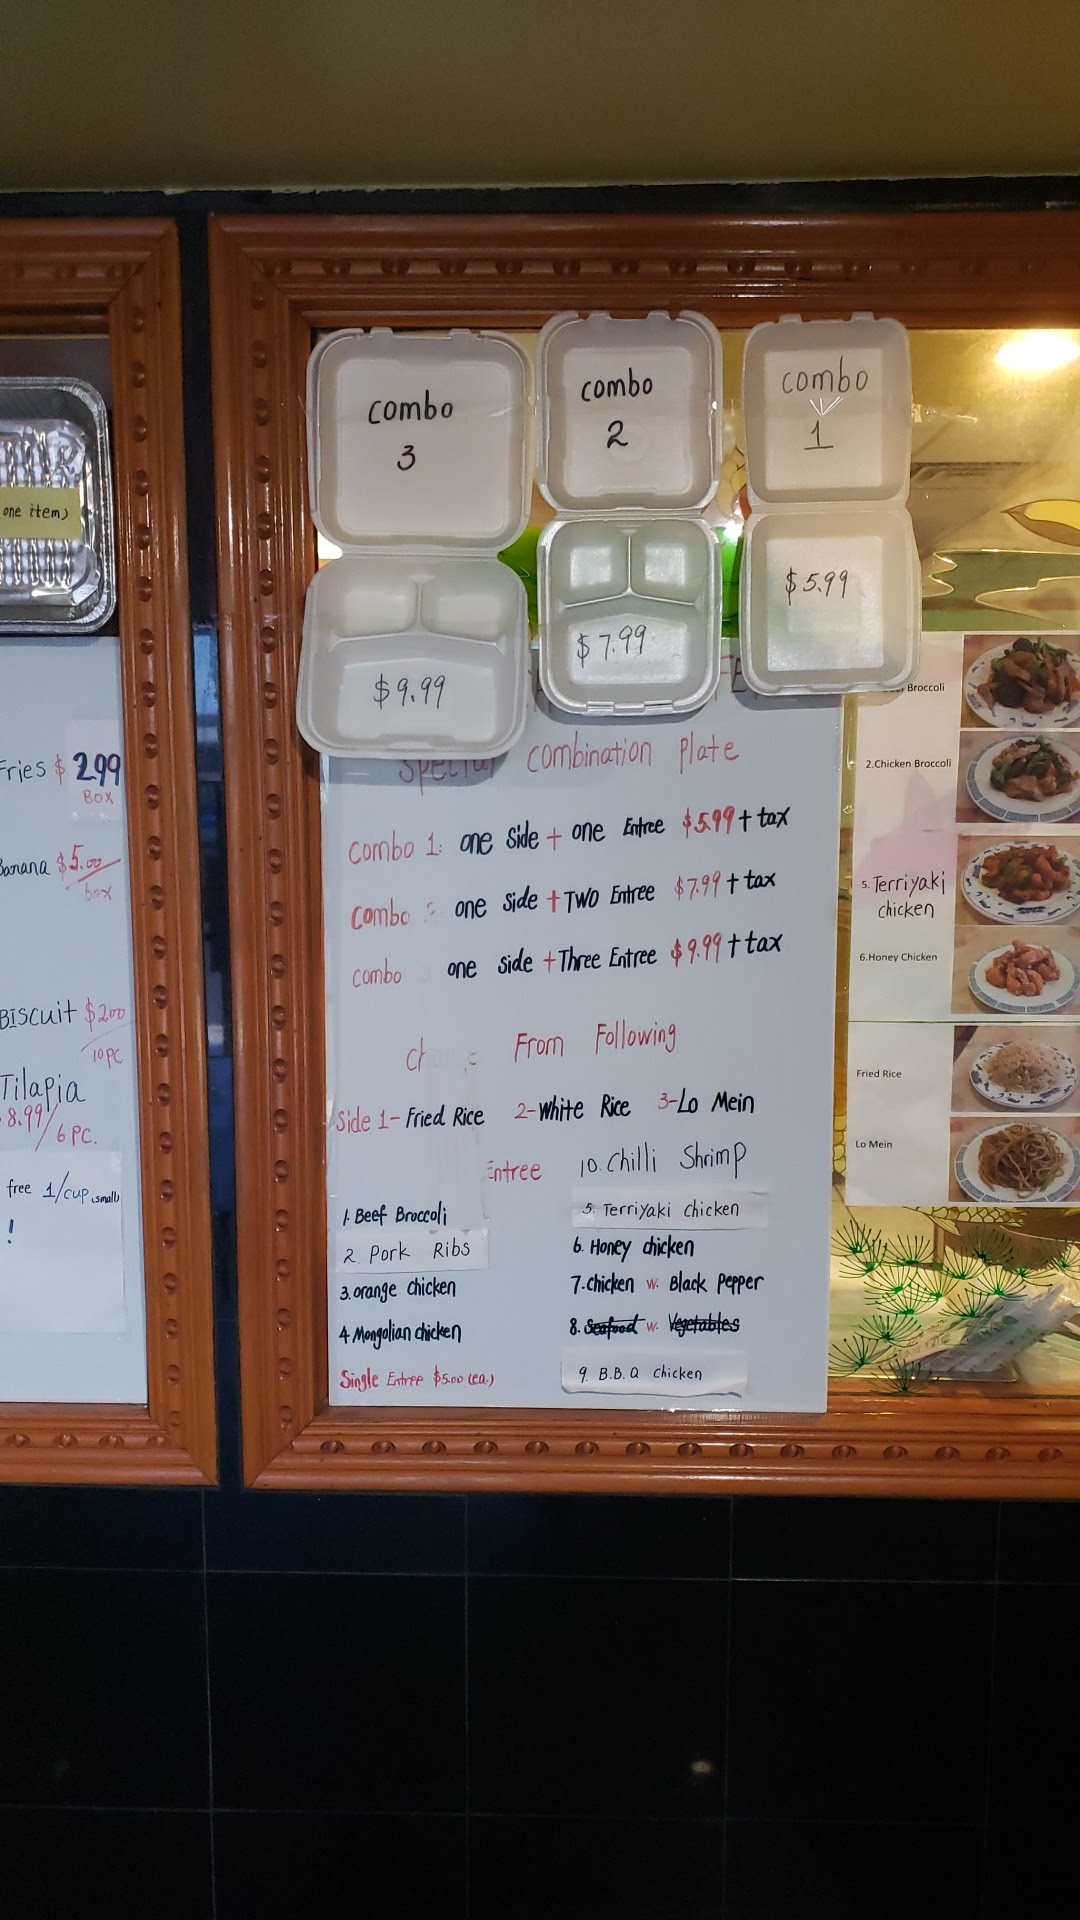 one item)
Fries $ 2.99
BOX
Banana $5.00
box
BISCUIT $2.00
10PC
Tilapia
8.99/
6 PC.
free 1/cup (small)
!
combo
3
$9.99
combo
2
$7.99
combo
1
$5.99
Special Combination Plate
Combo 1: one Side + one Entree $5.99 + tax
Combo one Side + TWO Entree $7.99 + tax
combo one side + Three Entree $9.99 + tax
From Following
Side 1- Fried Rice 2- White Rice 3- Lo Mein
Entree
10. Chilli Shrimp
1. Beef Broccoli
2. Pork Ribs
3. orange chicken
4. Mongolian chicken
Single Entree $5.00 (ea.)
5. Terriyaki chicken
6. Honey chicken
7. chicken w. Black Pepper
8. Seafood w. Vegetables
9. B.B.Q chicken
Broccoli
2.Chicken Broccoli
5. Terriyaki
chicken
6.Honey Chicken
Fried Rice
Lo Mein